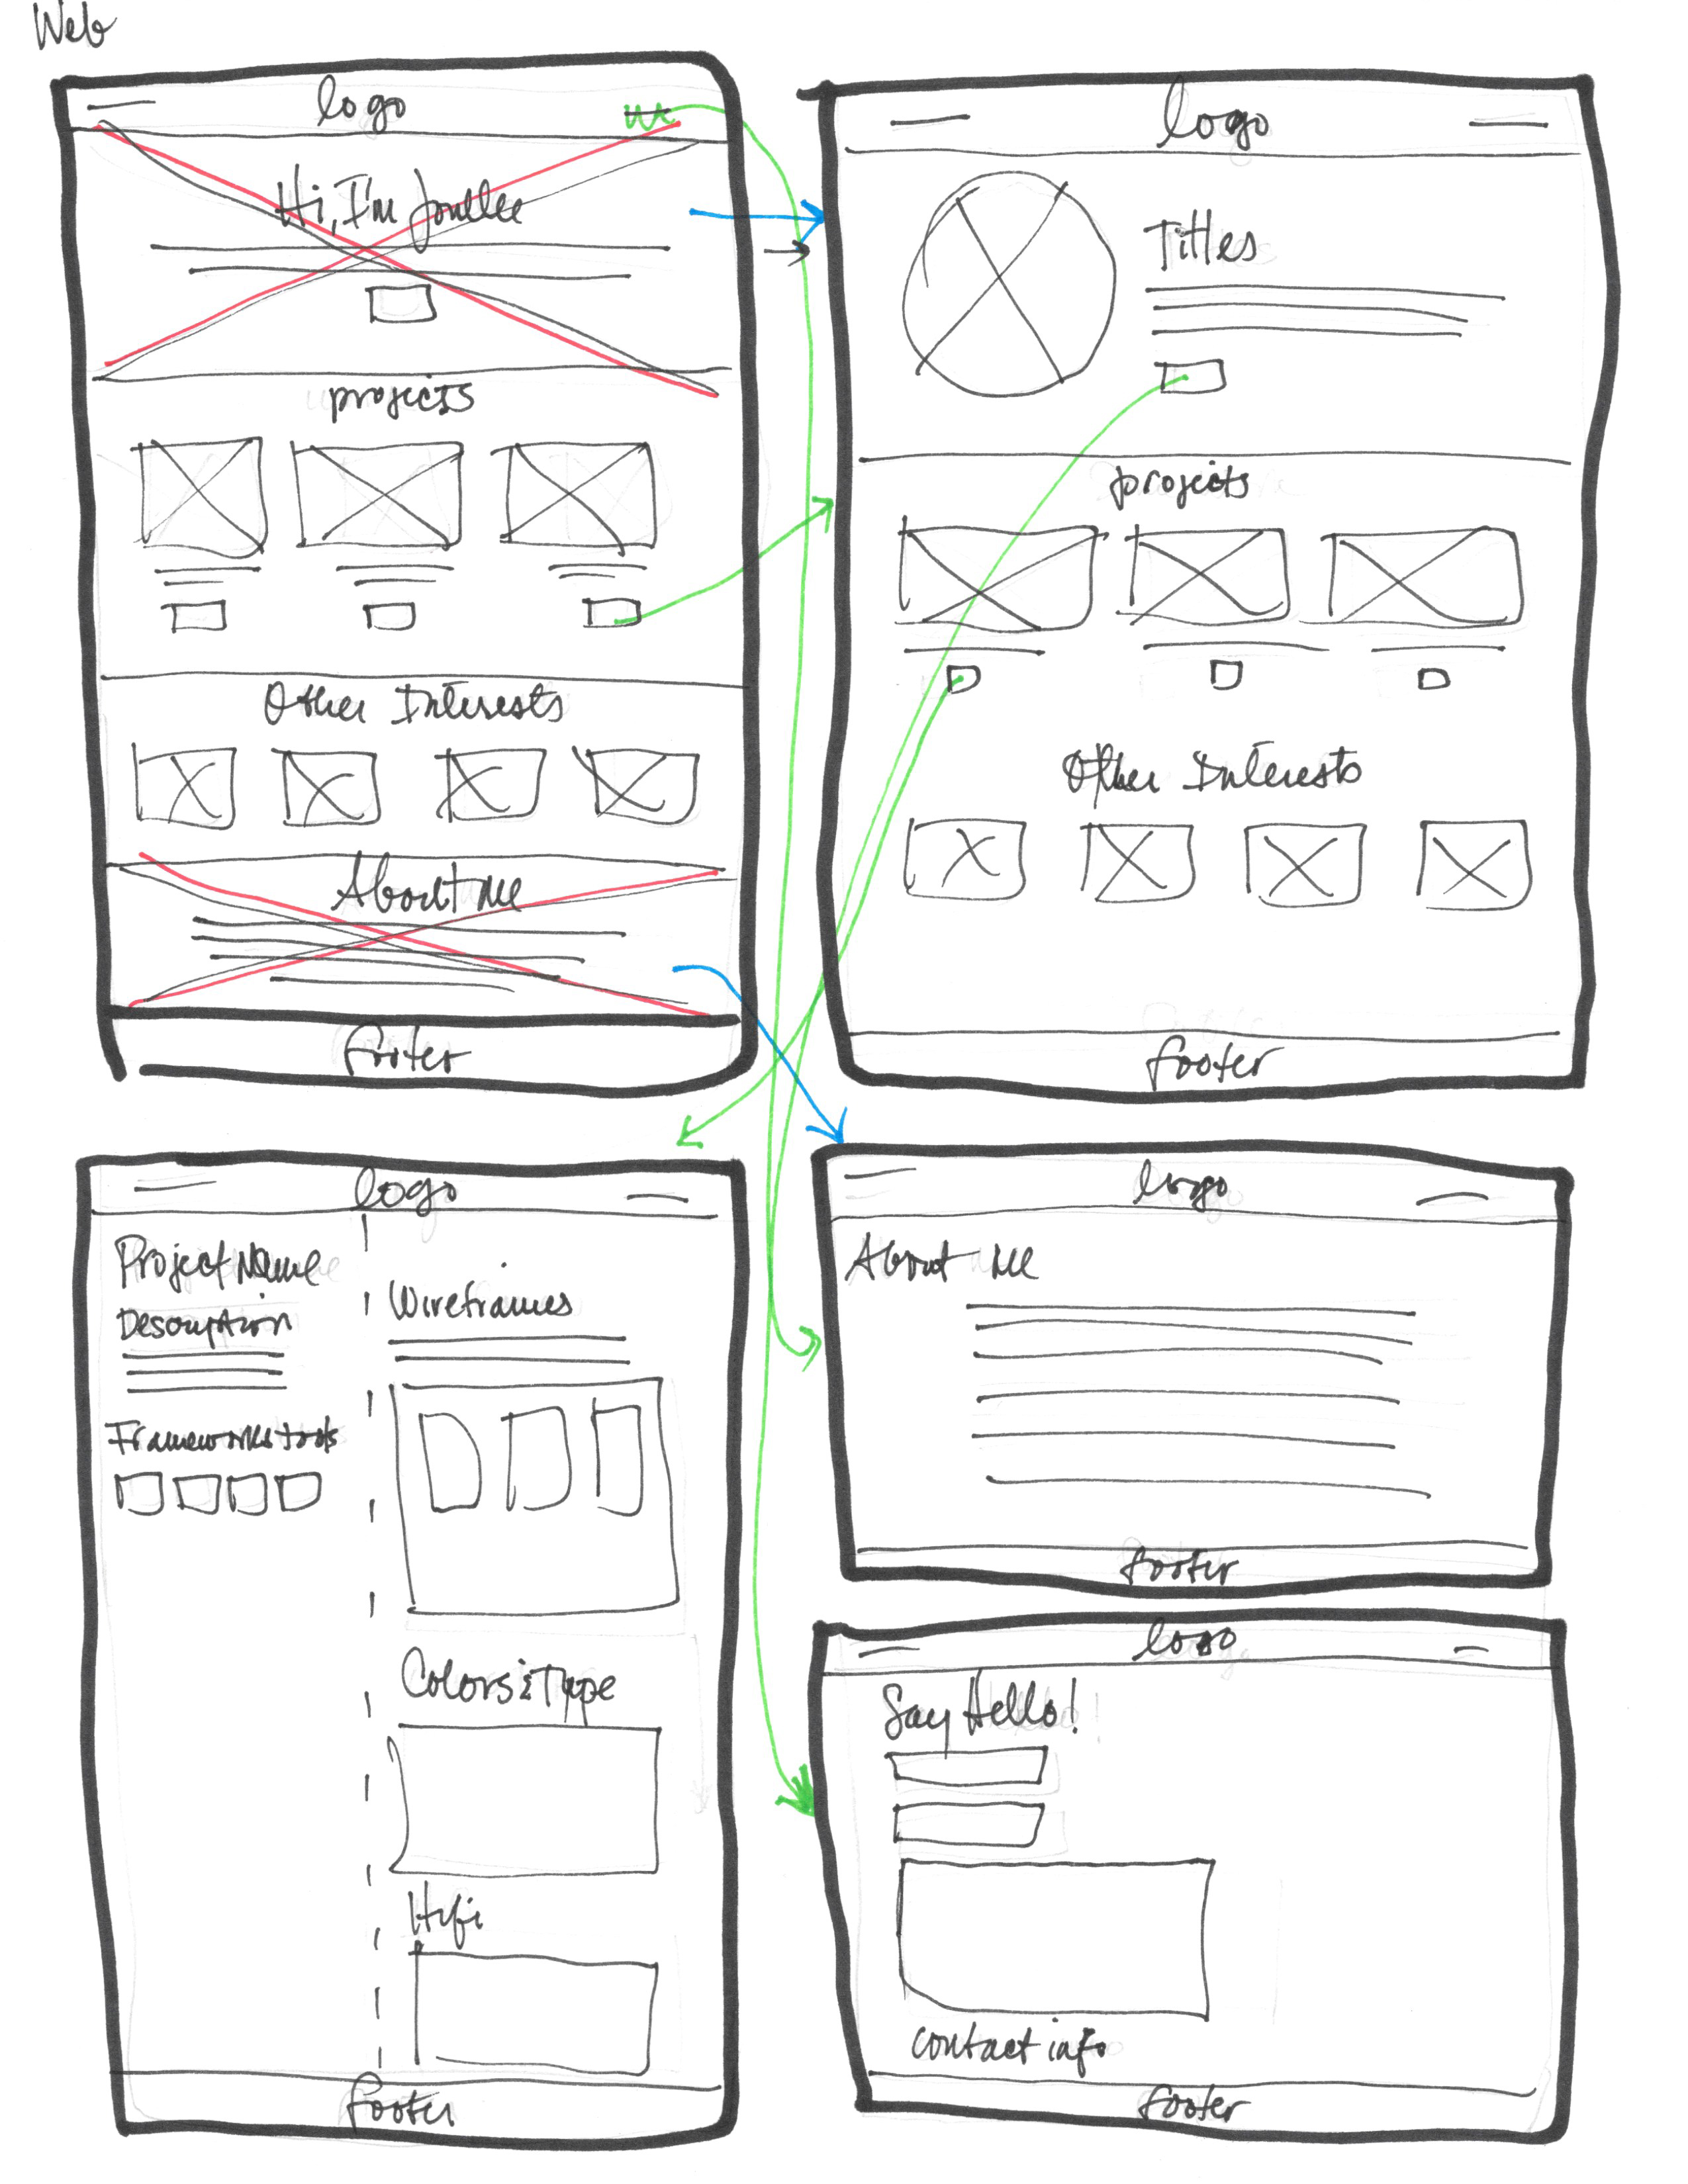 Web
logo
Hi, I'm
projects
Other Interests
About Me
footer
logo
Titles
projects
Other Interests
footer
logo
Project Name
Description
Frameworks tools
Wireframes
Colors & Type
Hifi
footer
logo
About Me
footer
logo
Say Hello!
contact info
footer